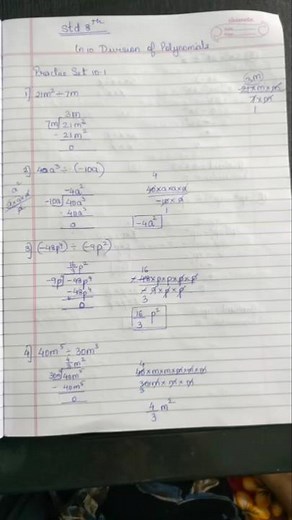 std 8th
Ln 10 Division of Polynomials
Practice Set 10.1
1) 21m² ÷ 7m
3m
7m 21m²
- 21m²
0
2) 40a³ ÷ (-10a)
-4a²
-10a 40a³
40a³
0
4
40×a×a×a
-4a²
3) (-48p⁴) ÷ (-9p²)
16/3 p²
-9p² -48p⁴
-48p⁴
0
16
- 48×p×p×p×p
- 9×p×p
3
16/3 p²
4) 40m⁵ ÷ 30m³
4/3 m²
30m³ 40m⁵
- 40m⁵
0
4
40×m×m×m×m×m
30×m×m×m
3
4/3 m²